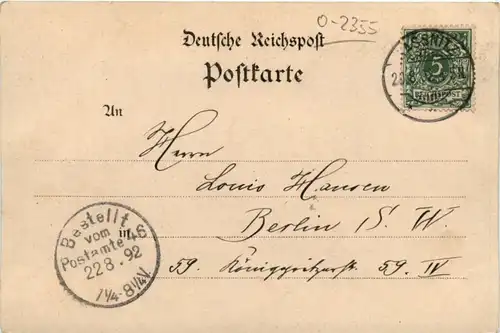 O-2355
Deutsche Reichspost
Postkarte
SSNITZ
5
An
Herrn
Louis Hansen
Berlin S. W.
in
59. Königgrätzerstr 59. IV
Bestellt
vom
Postamte 46
22 8. 92
7¼-8¼V.